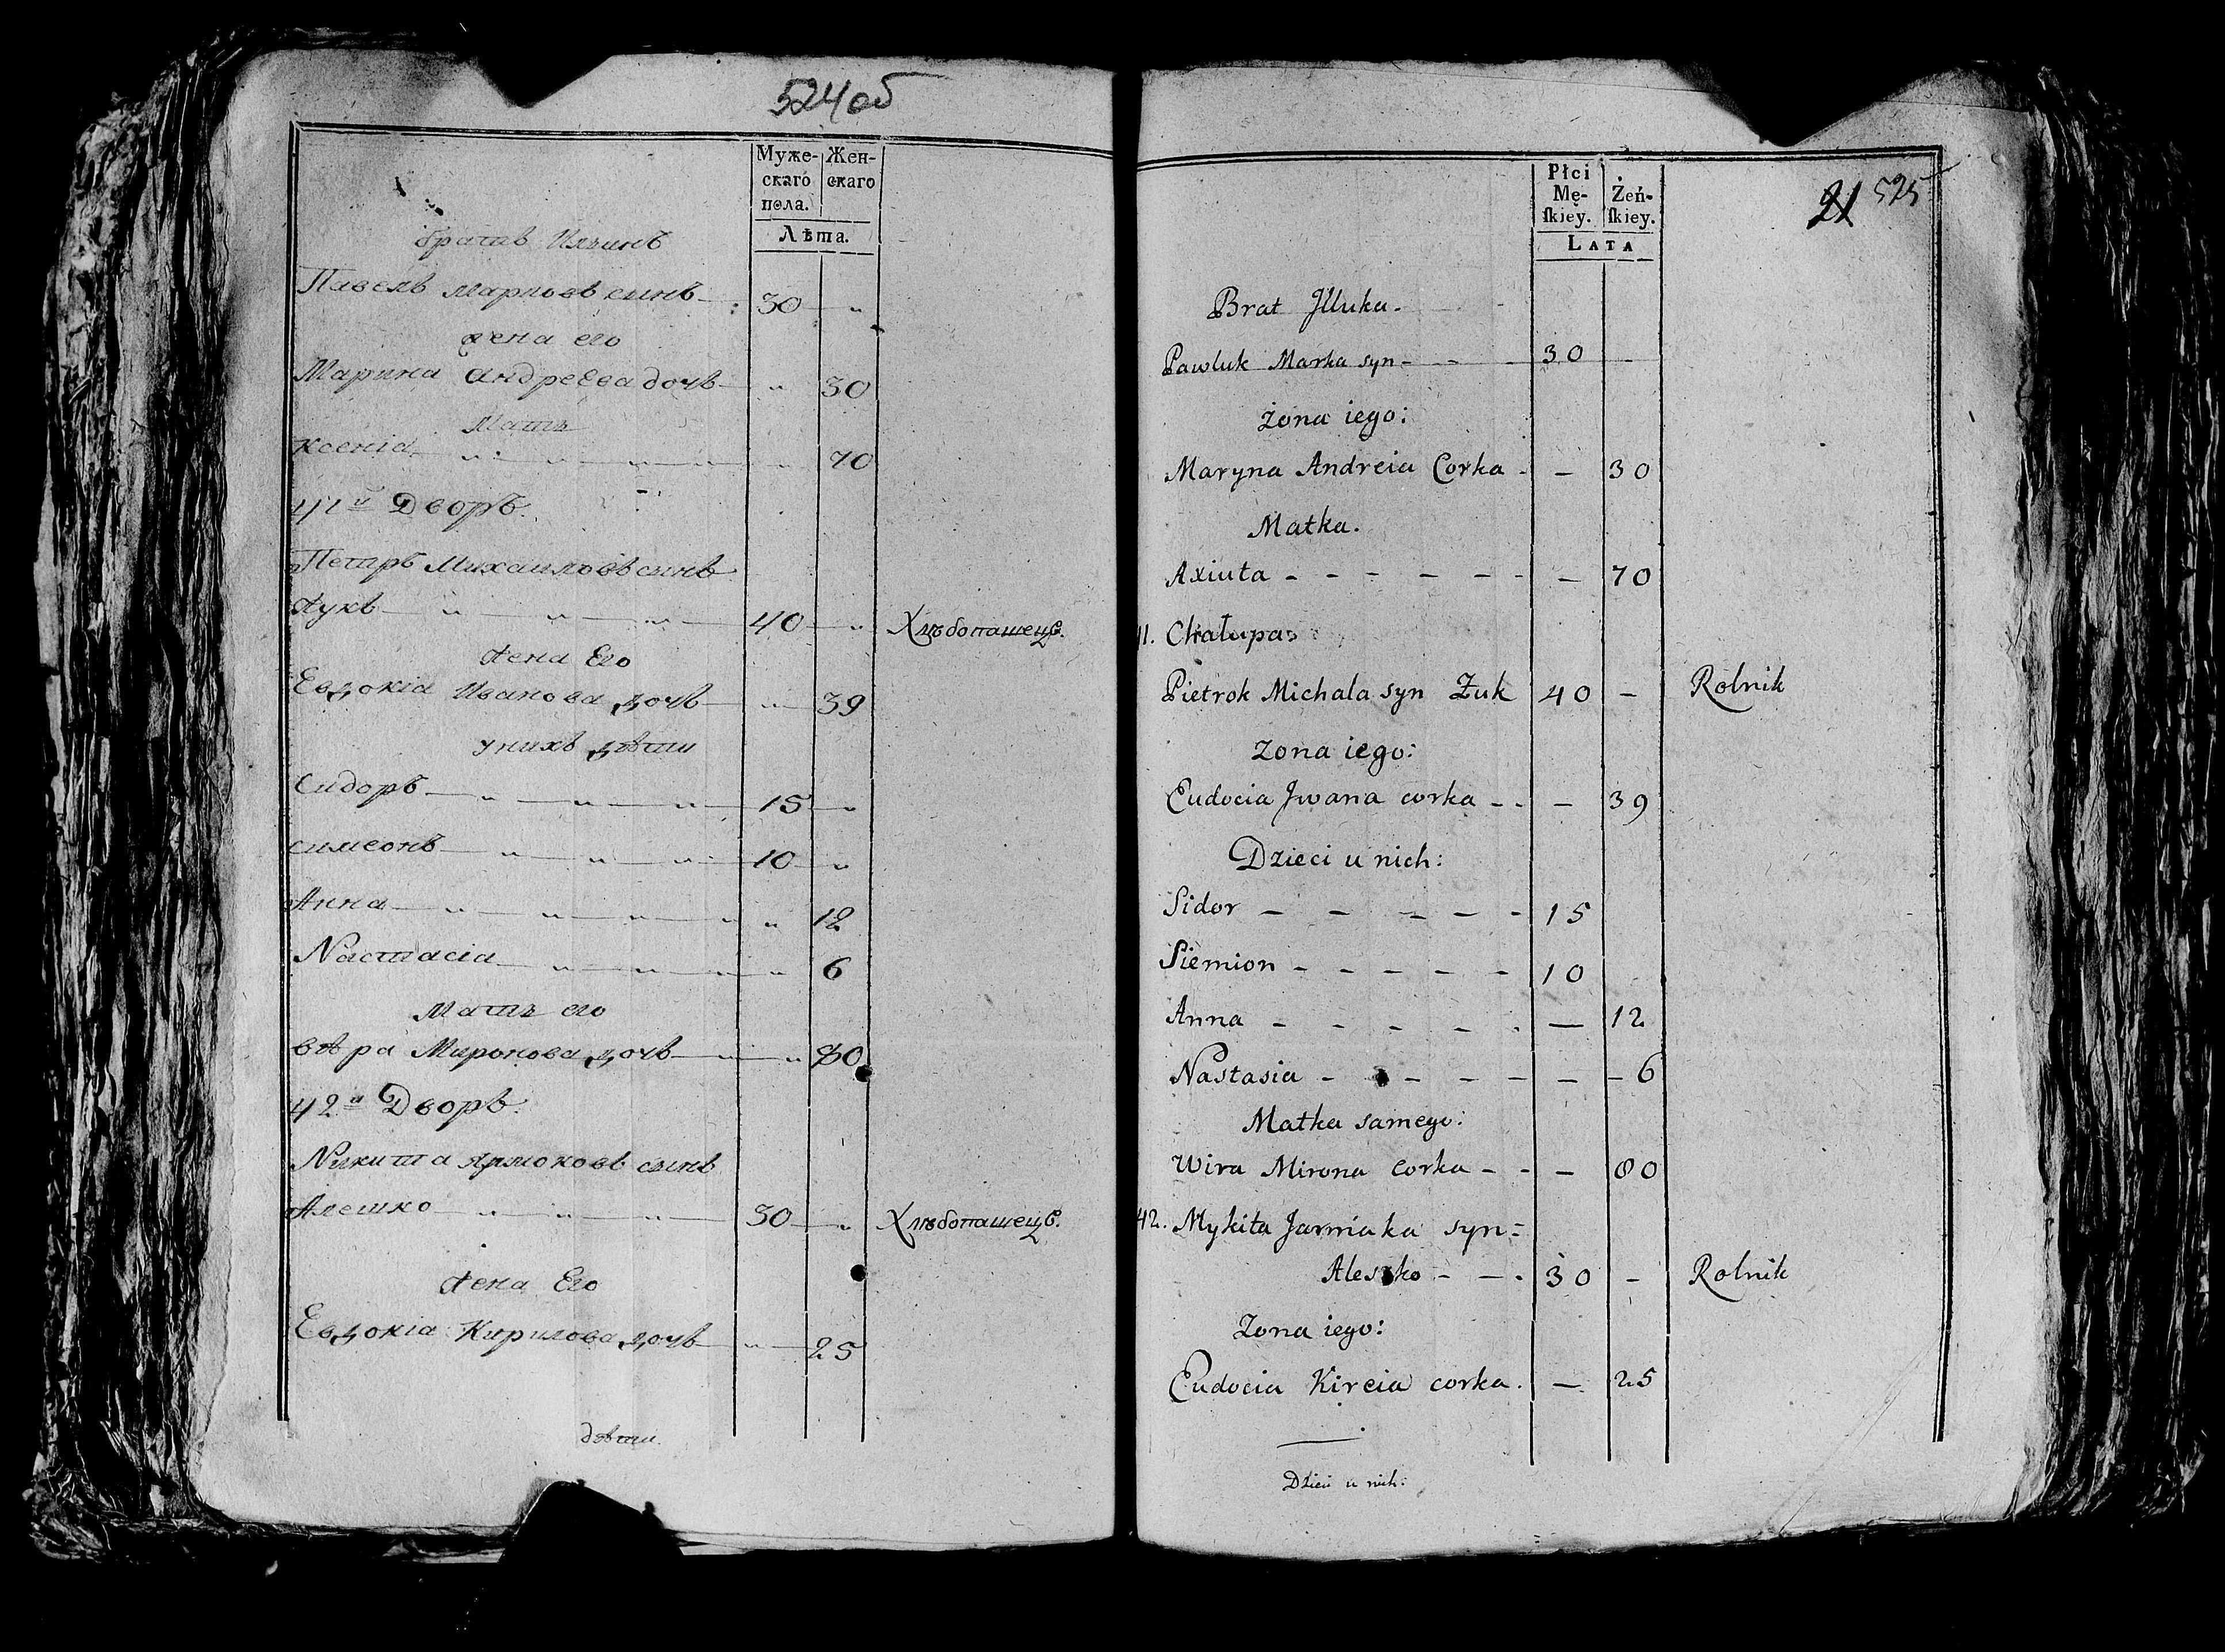 524об
Муже- Жен-
скаго скаго
пола.
Лѣта.
братъ Ильинъ
Павелъ Марковъ сынъ 30 "
жена его
Марина Андреева дочь " 30
Мать
Ксенія " 70
41й Дворъ.
Петръ Михаиловъ сынъ
Жукъ 40 " Хлѣбопашецъ.
жена Его
Евдокіа Иванова дочь " 39
у нихъ дѣти
Сидоръ 15 "
симеонъ 10 "
Анна " 12
Настасіа " 6
Мать его
вѣра Миронова дочь " 80
42й Дворъ.
Никита Ярмоковъ сынъ
Алешко 30 " Хлѣбопашецъ.
жена Его
Евдокіа Кирилова дочь " 25
дѣти.
21 525
Płci
Mę- Żeń-
ſkiey. ſkiey.
LATA
Brat Illuka.
Pawluk Marka syn - - - 30 -
żona iego:
Maryna Andreia Corka - - 30
Matka.
Axiuta - - - - - - - 70
41. Chałupa
Pietrok Michala syn Żuk 40 - Rolnik
żona iego:
Eudocia Jwana corka - - - 39
Dzieci u nich:
Sidor - - - - - 15
Siemion - - - - - 10
Anna - - - - - - 12
Nastasia - - - - - - - 6
Matka samego:
Wira Mirona Corka - - - 80
42. Mykita Jarmaka syn=
Aleszko - - - 30 - Rolnik
Zona iego:
Eudocia Kircia corka. - 25
Dzieci u nich: